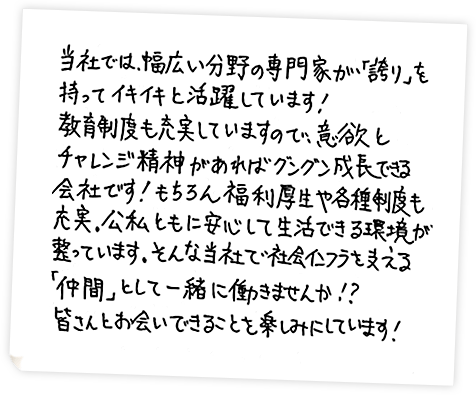 当社では、幅広い分野の専門家が、「誇り」を
持ってイキイキと活躍しています!
教育制度も充実していますので、意欲と
チャレンジ精神があればグングン成長できる
会社です!もちろん福利厚生や各種制度も
充実。公私ともに安心して生活できる環境が
整っています。そんな当社で社会インフラを支える
「仲間」として一緒に働きませんか!?
皆さんとお会いできることを楽しみにしています!